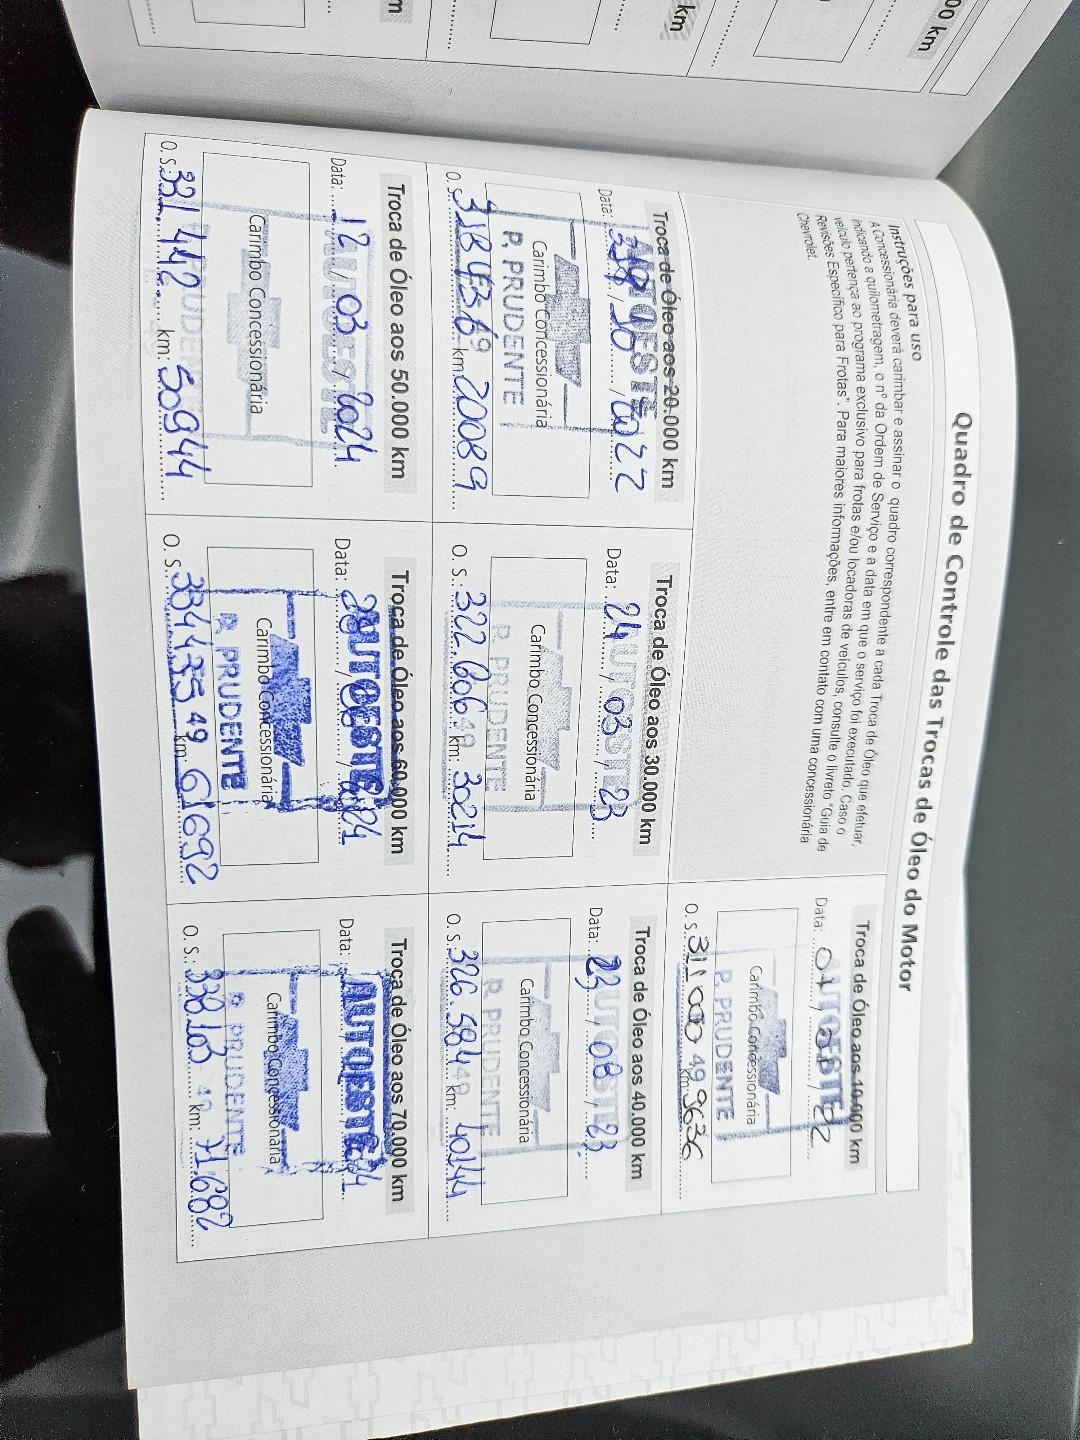 00 km
km
m
Quadro de Controle das Trocas de Óleo do Motor
Instruções para uso
A Concessionária deverá carimbar e assinar o quadro correspondente a cada Troca de Óleo que efetuar,
indicando a quilometragem, o nº da Ordem de Serviço e a data em que o serviço foi executado. Caso o
veículo pertença ao programa exclusivo para frotas e/ou locadoras de veículos, consulte o livreto "Guia de
Revisões Específico para Frotas". Para maiores informações, entre em contato com uma concessionária
Chevrolet.
Troca de Óleo aos 10.000 km
Data:
AUTOESTE
Carimbo Concessionária
P. PRUDENTE
O. S.: 311000 49 km: 9636
Troca de Óleo aos 20.000 km
Data: / / 2022
AUTOESTE
Carimbo Concessionária
P. PRUDENTE
O. S.: 49 km: 20089
Troca de Óleo aos 30.000 km
Data: 24 / 03 / 23
AUTOESTE
Carimbo Concessionária
P. PRUDENTE
O. S.: 322.606 49 km: 30214
Troca de Óleo aos 40.000 km
Data: 23 / 08 / 23
AUTOESTE
Carimbo Concessionária
P. PRUDENTE
O. S.: 326.584 49 km: 40144
Troca de Óleo aos 50.000 km
Data: 12 / 03 / 2024
AUTOESTE
Carimbo Concessionária
PRUDENTE
O. S.: 331.442 km: 50944
Troca de Óleo aos 60.000 km
Data:
AUTOESTE
Carimbo Concessionária
P. PRUDENTE
O. S.: 334435 49 km: 61692
Troca de Óleo aos 70.000 km
Data:
AUTOESTE
Carimbo Concessionária
P. PRUDENTE
O. S.: 338103 49 km: 71.682